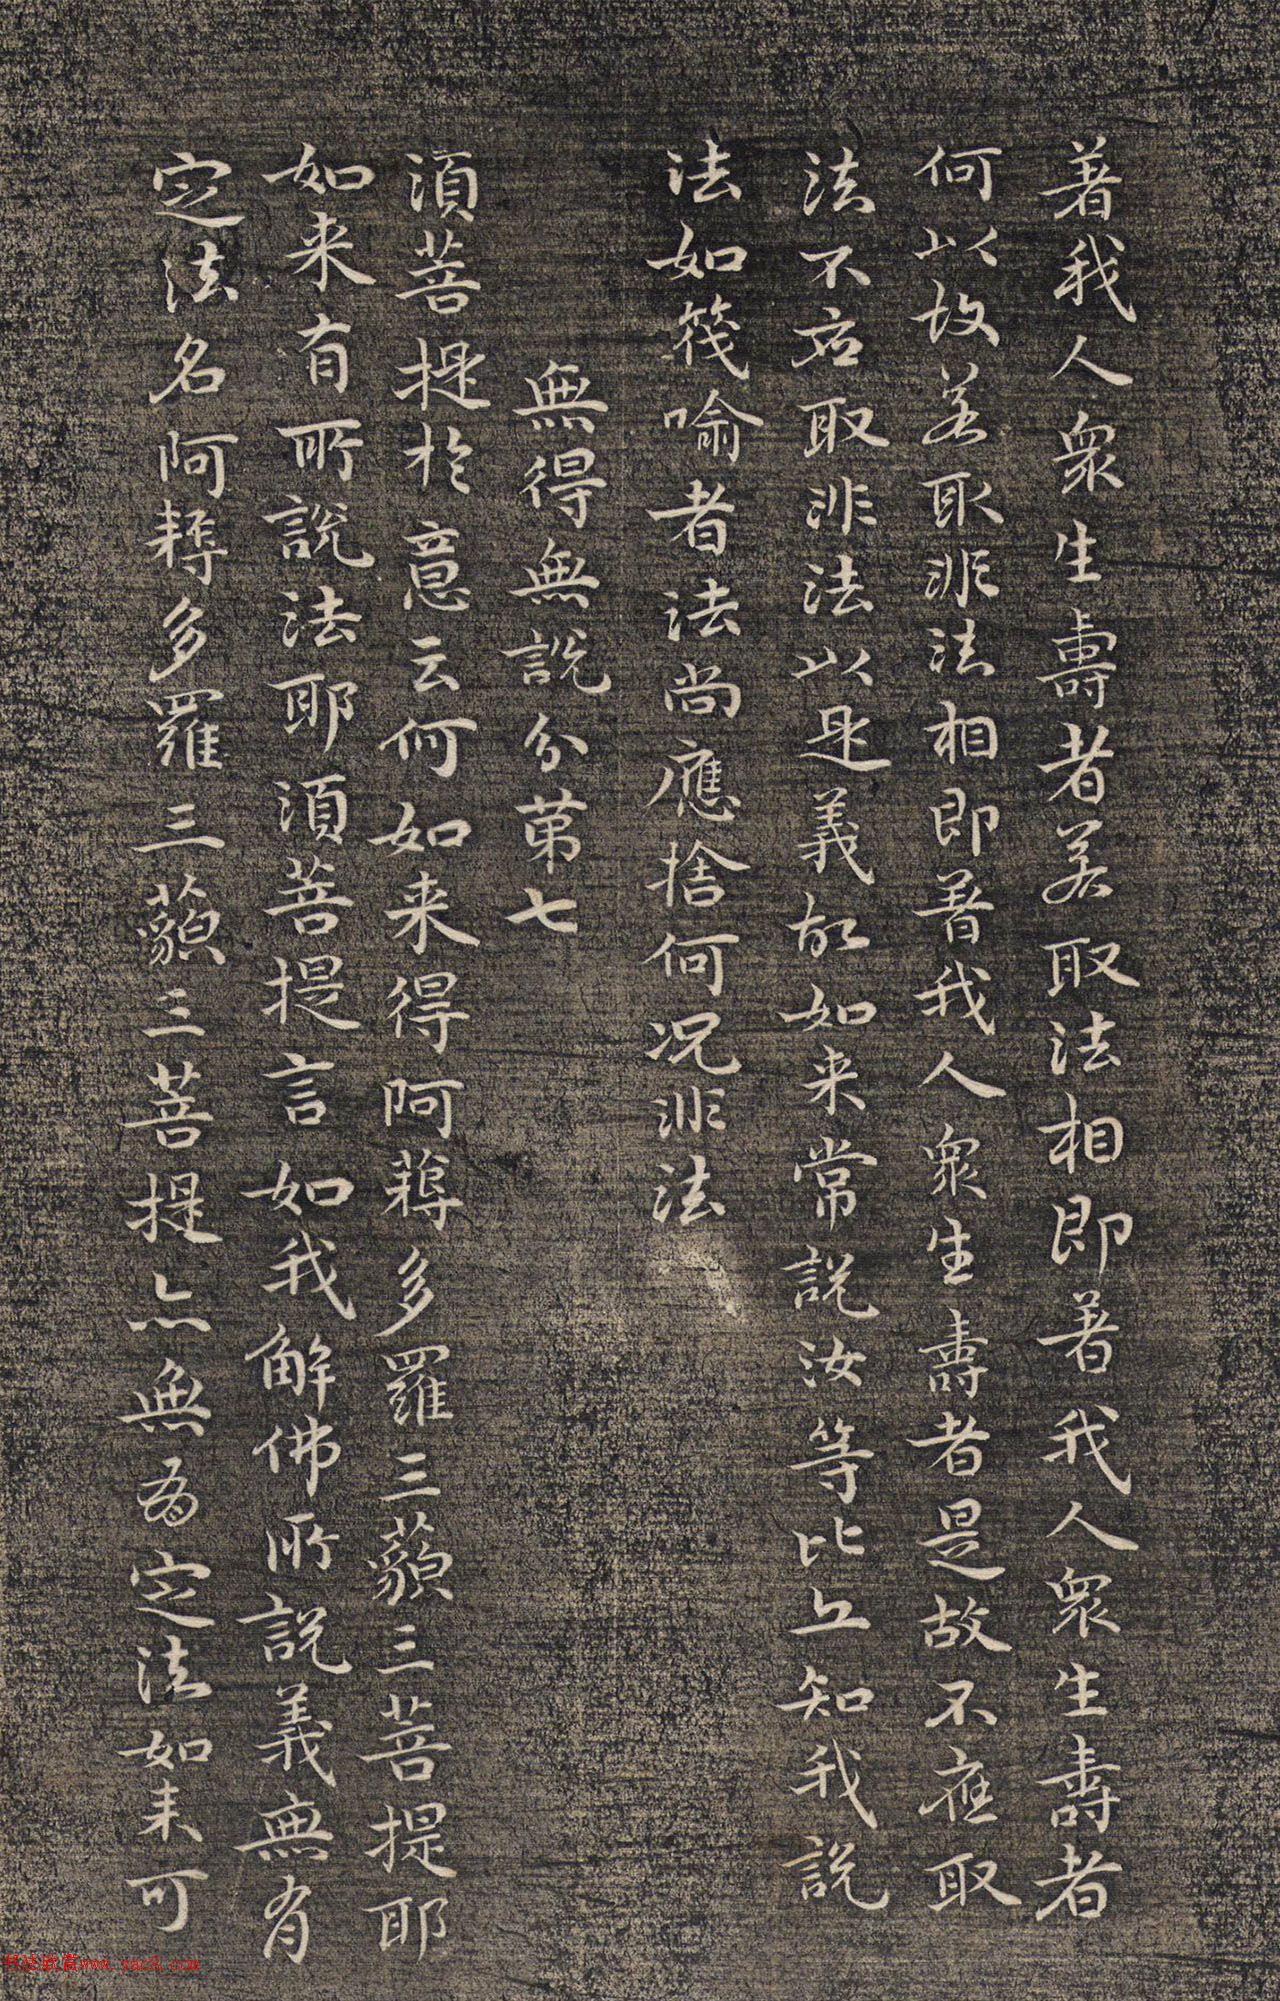 著我人衆生壽者若取法相即著我人衆生壽者
何以故若取非法相即著我人衆生壽者是故不應取
法不應取非法以是義故如来常說汝等比丘知我說
法如筏喻者法尚應捨何況非法
無得無說分苐七
湏菩提於意云何如来得阿耨多羅三藐三菩提耶
如来有所說法耶湏菩提言如我解佛所說義無有
定法名阿耨多羅三藐三菩提亦無有定法如来可
书法欣赏www.yac8.com